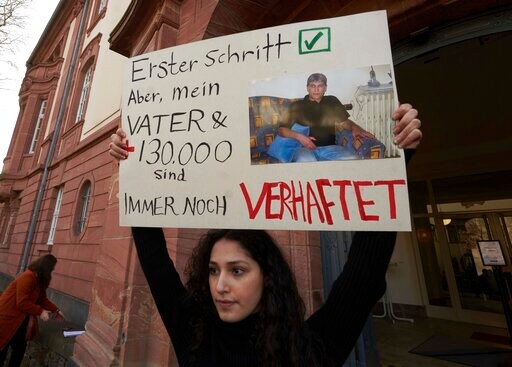 Erster Schritt ✓
Aber, mein
VATER &
+130.000
sind
IMMER NOCH VERHAFTET